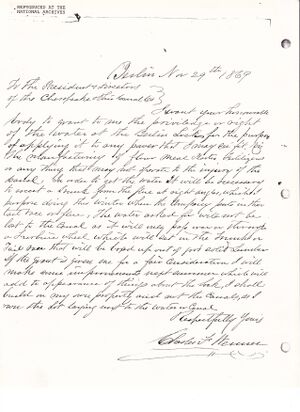 REPRODUCED AT THE
NATIONAL ARCHIVES
Berlin Nov 29th 1869
To The President & Directors
of the Chesapeake & Ohio Canal Co
I want your honourable
body to grant to me the priviledge or right
of the water at the Berlin Lock for the purpose
of applying it to any power that I may see fit, for
the manufacturing of flour meal
or any thing that may not prove to the injury of the
Canal. In order to get the water it will be necessary
to erect a trunk from the flume at right angles, which I
purpose doing this winter when the Company puts in their
race or flume. The water asked for will not be
lost to the Canal as it will pass through
a turbine wheel which will set in the trunk or
race that will be kept up out of good Lumber
if the grant is given me for a fair consideration I will
make some improvements next summer which will
add to appearance of things about the lock, I shall
build on my own property and not the Canals, as I
own the lot laying next to the waters in Canal
Respectfully Yours
Charles F. Wenner